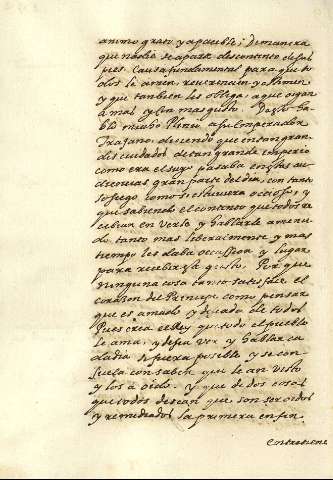 animo grato y apacible; De manera
que nadie se aparte descontento de sus
pies. Causa fundamental para que to
dos le amen, reverencien y estimen
y que tambien les obliga, a que oigan
a mas y con mas gusto. De esto ha
bló mucho Plinio a su emperador
Trajano, diciendo que en tan gran
des cuidados de tan grande imperio
como era el suyo pasaba en las au
diencias gran parte del dia, con tanto
sosiego como si estuviera ocioso; y
que sabiendo el contento que todos re
cibian en verle y hablarle a menu
do tanto mas liberalmente y mas
tiempo les daba ocassion y lugar
para recebir ese gusto. Por que
ninguna cosa tanto satisface el
corazon del Principe como pensar
que es amado y deseado de todos
Pues crea el Rey que todo el pueblo
le ama, y desea ver y hablar ca
da dia si fuera posible y se con
suela con saber que le an visto
y los a oido. Y que de dos cosas
que todos desean que son ser oidos
y remediados la primera en fin
entretiene